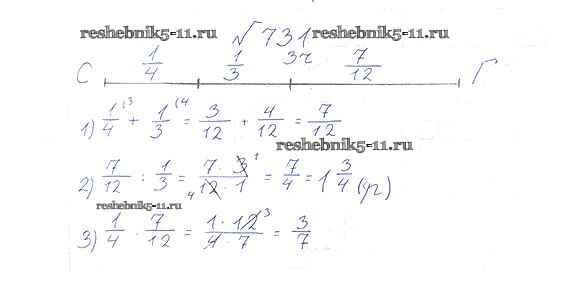 reshebnik5-11.ru √731 reshebnik5-11.ru
С 1/4 1/3 3ч 7/12 Г
1) 1/4 (3 + 1/3 (4 = 3/12 + 4/12 = 7/12
reshebnik5-11.ru
2) 7/12 : 1/3 = 7 · 3 1/4 12 · 1 = 7/4 = 1 3/4 (уг)
reshebnik5-11.ru
3) 1/4 · 7/12 = 1 · 12 3/4 · 7 = 3/7